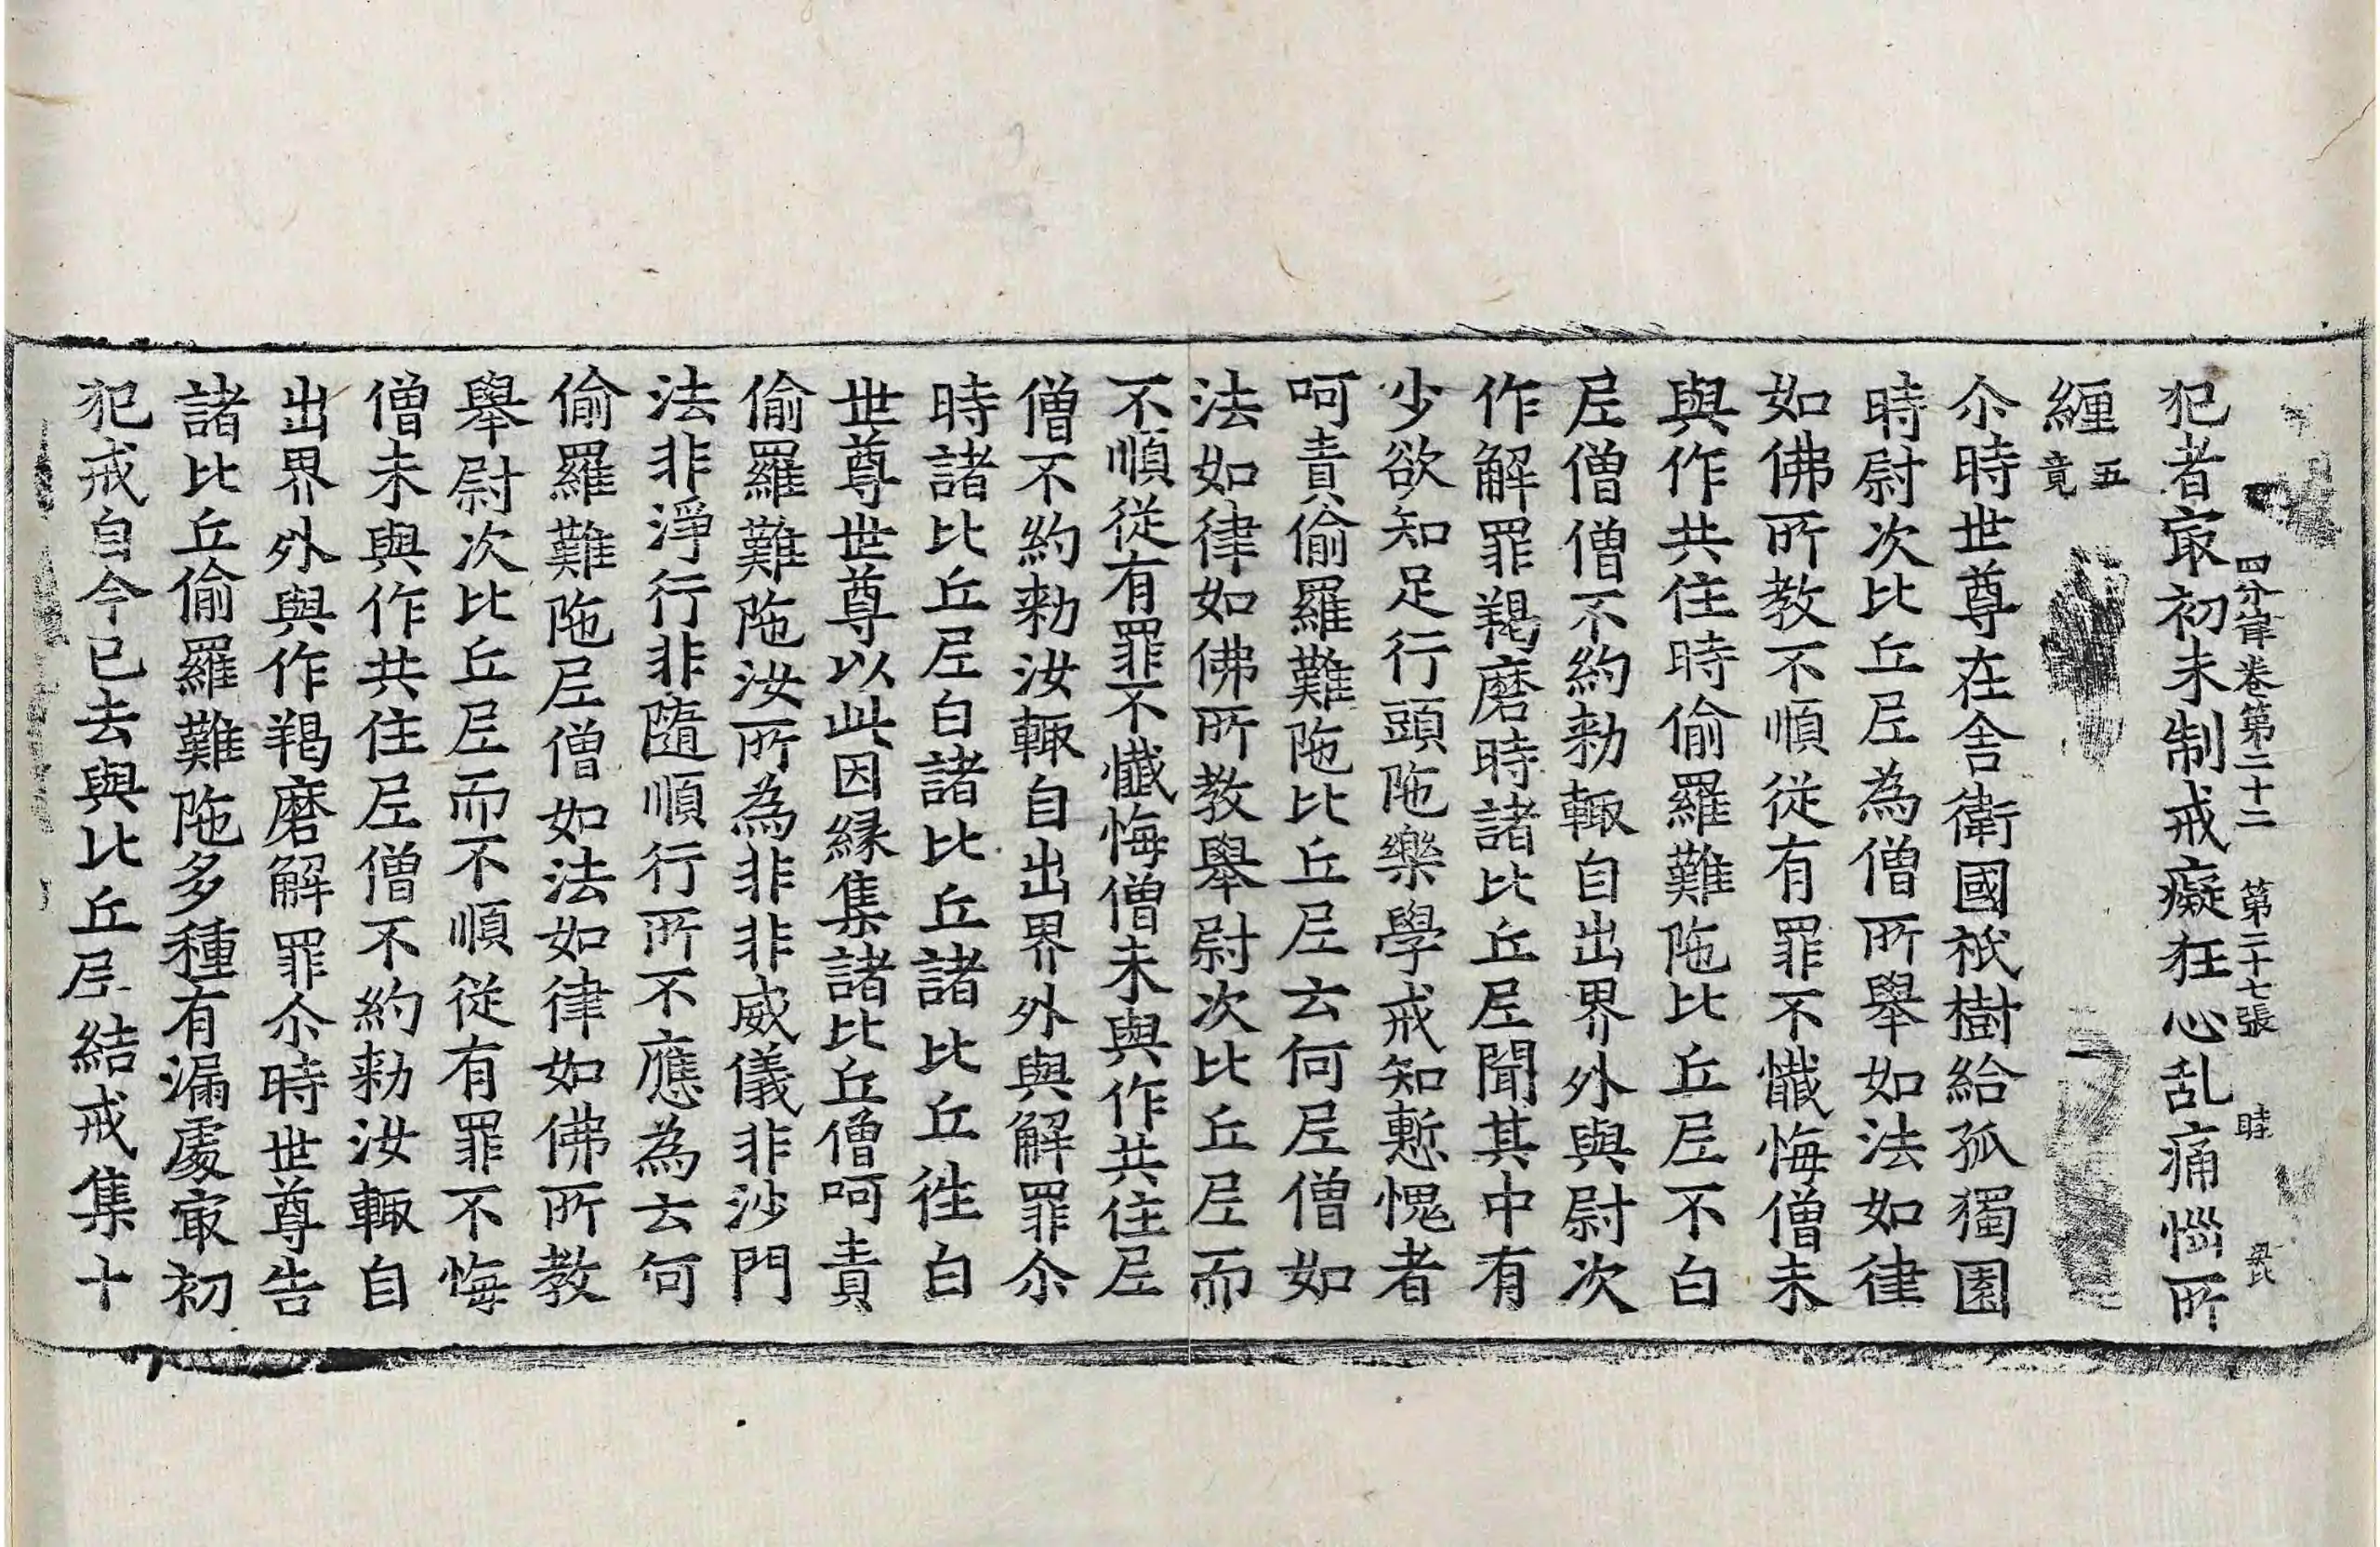 四分律卷第二十二 第二十七張 睦
犯者㝡初未制戒癡狂心乱痛惱所
纏五竟
尒時世尊在舍衛國祇樹給孤獨園
時尉次比丘尼為僧所舉如法如律
如佛所教不順從有罪不懺悔僧未
與作共住時偷羅難陁比丘尼不白
尼僧僧不約勑輒自出界外與尉次
作解罪羯磨時諸比丘尼聞其中有
少欲知足行頭陁樂學戒知慙愧者
呵責偷羅難陁比丘尼云何尼僧如
法如律如佛所教舉尉次比丘尼而
不順從有罪不懺悔僧未與作共住尼
僧不約勑汝輒自出界外與解罪尒
時諸比丘尼白諸比丘諸比丘往白
世尊世尊以此因縁集諸比丘僧呵責
偷羅難陁汝所為非非威儀非沙門
法非淨行非隨順行所不應為云何
偷羅難陁尼僧如法如律如佛所教
舉尉次比丘尼而不順從有罪不悔
僧未與作共住尼僧不約勑汝輒自
出界外與作羯磨解罪尒時世尊告
諸比丘偷羅難陁多種有漏處㝡初
犯戒自今已去與比丘尼結戒集十